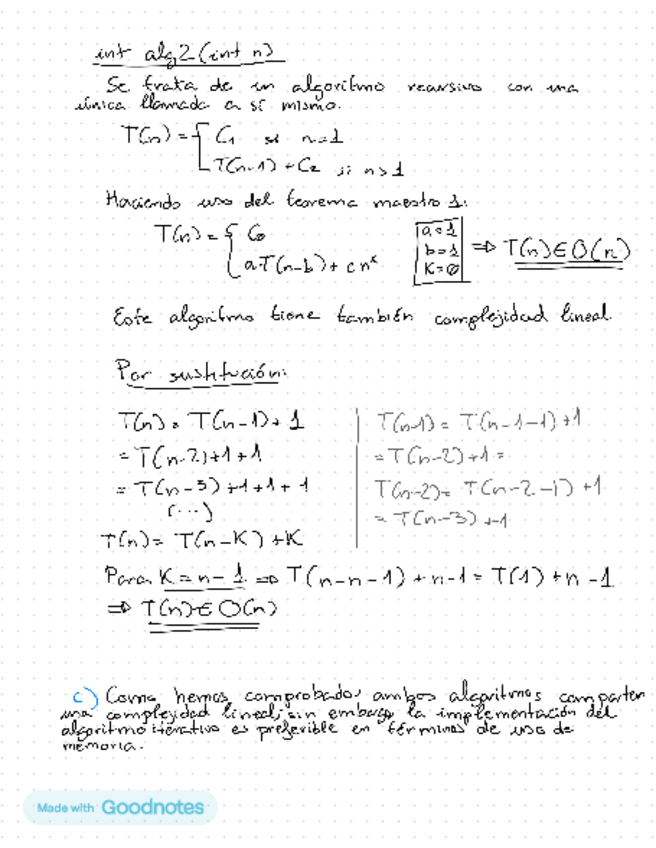 int alg2(int n)
Se trata de un algoritmo recursivo con una
única llamada a sí mismo.
T(n) = { C₁ si n=1
T(n-1) + C₂ si n>1
Haciendo uso del teorema maestro 1:
T(n) = { C₀
a·T(n-b) + cnᵏ
a=1
b=1
K=0
=> T(n) ∈ O(n)
Este algoritmo tiene también complejidad lineal.
Por sustitución:
T(n) = T(n-1) + 1
= T(n-2)+1+1
= T(n-3)+1+1+1
(...)
T(n) = T(n-K) + K
T(n-1) = T(n-1-1)+1
= T(n-2)+1 =
T(n-2) = T(n-2-1) + 1
= T(n-3) + 1
Para K = n-1 => T(n-n-1) + n-1 = T(1) + n - 1
=> T(n) ∈ O(n)
c) Como hemos comprobado, ambos algoritmos comparten
una complejidad lineal; sin embargo la implementación del
algoritmo iterativo es preferible en términos de uso de
memoria.
Made with Goodnotes